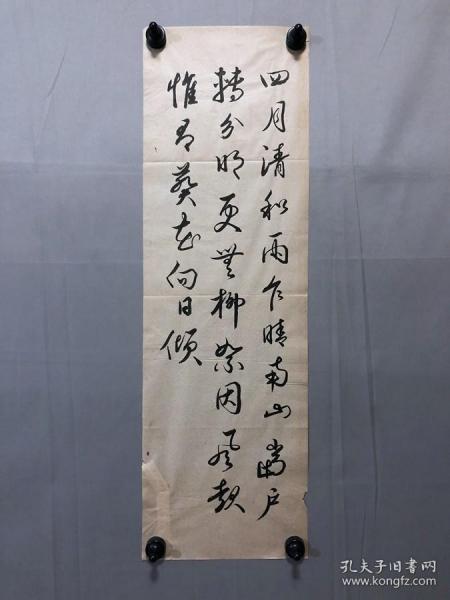 四月清和雨乍晴南山當户
轉分明更無柳絮因風起
惟有葵花向日傾
孔夫子旧书网
www.kongfz.com